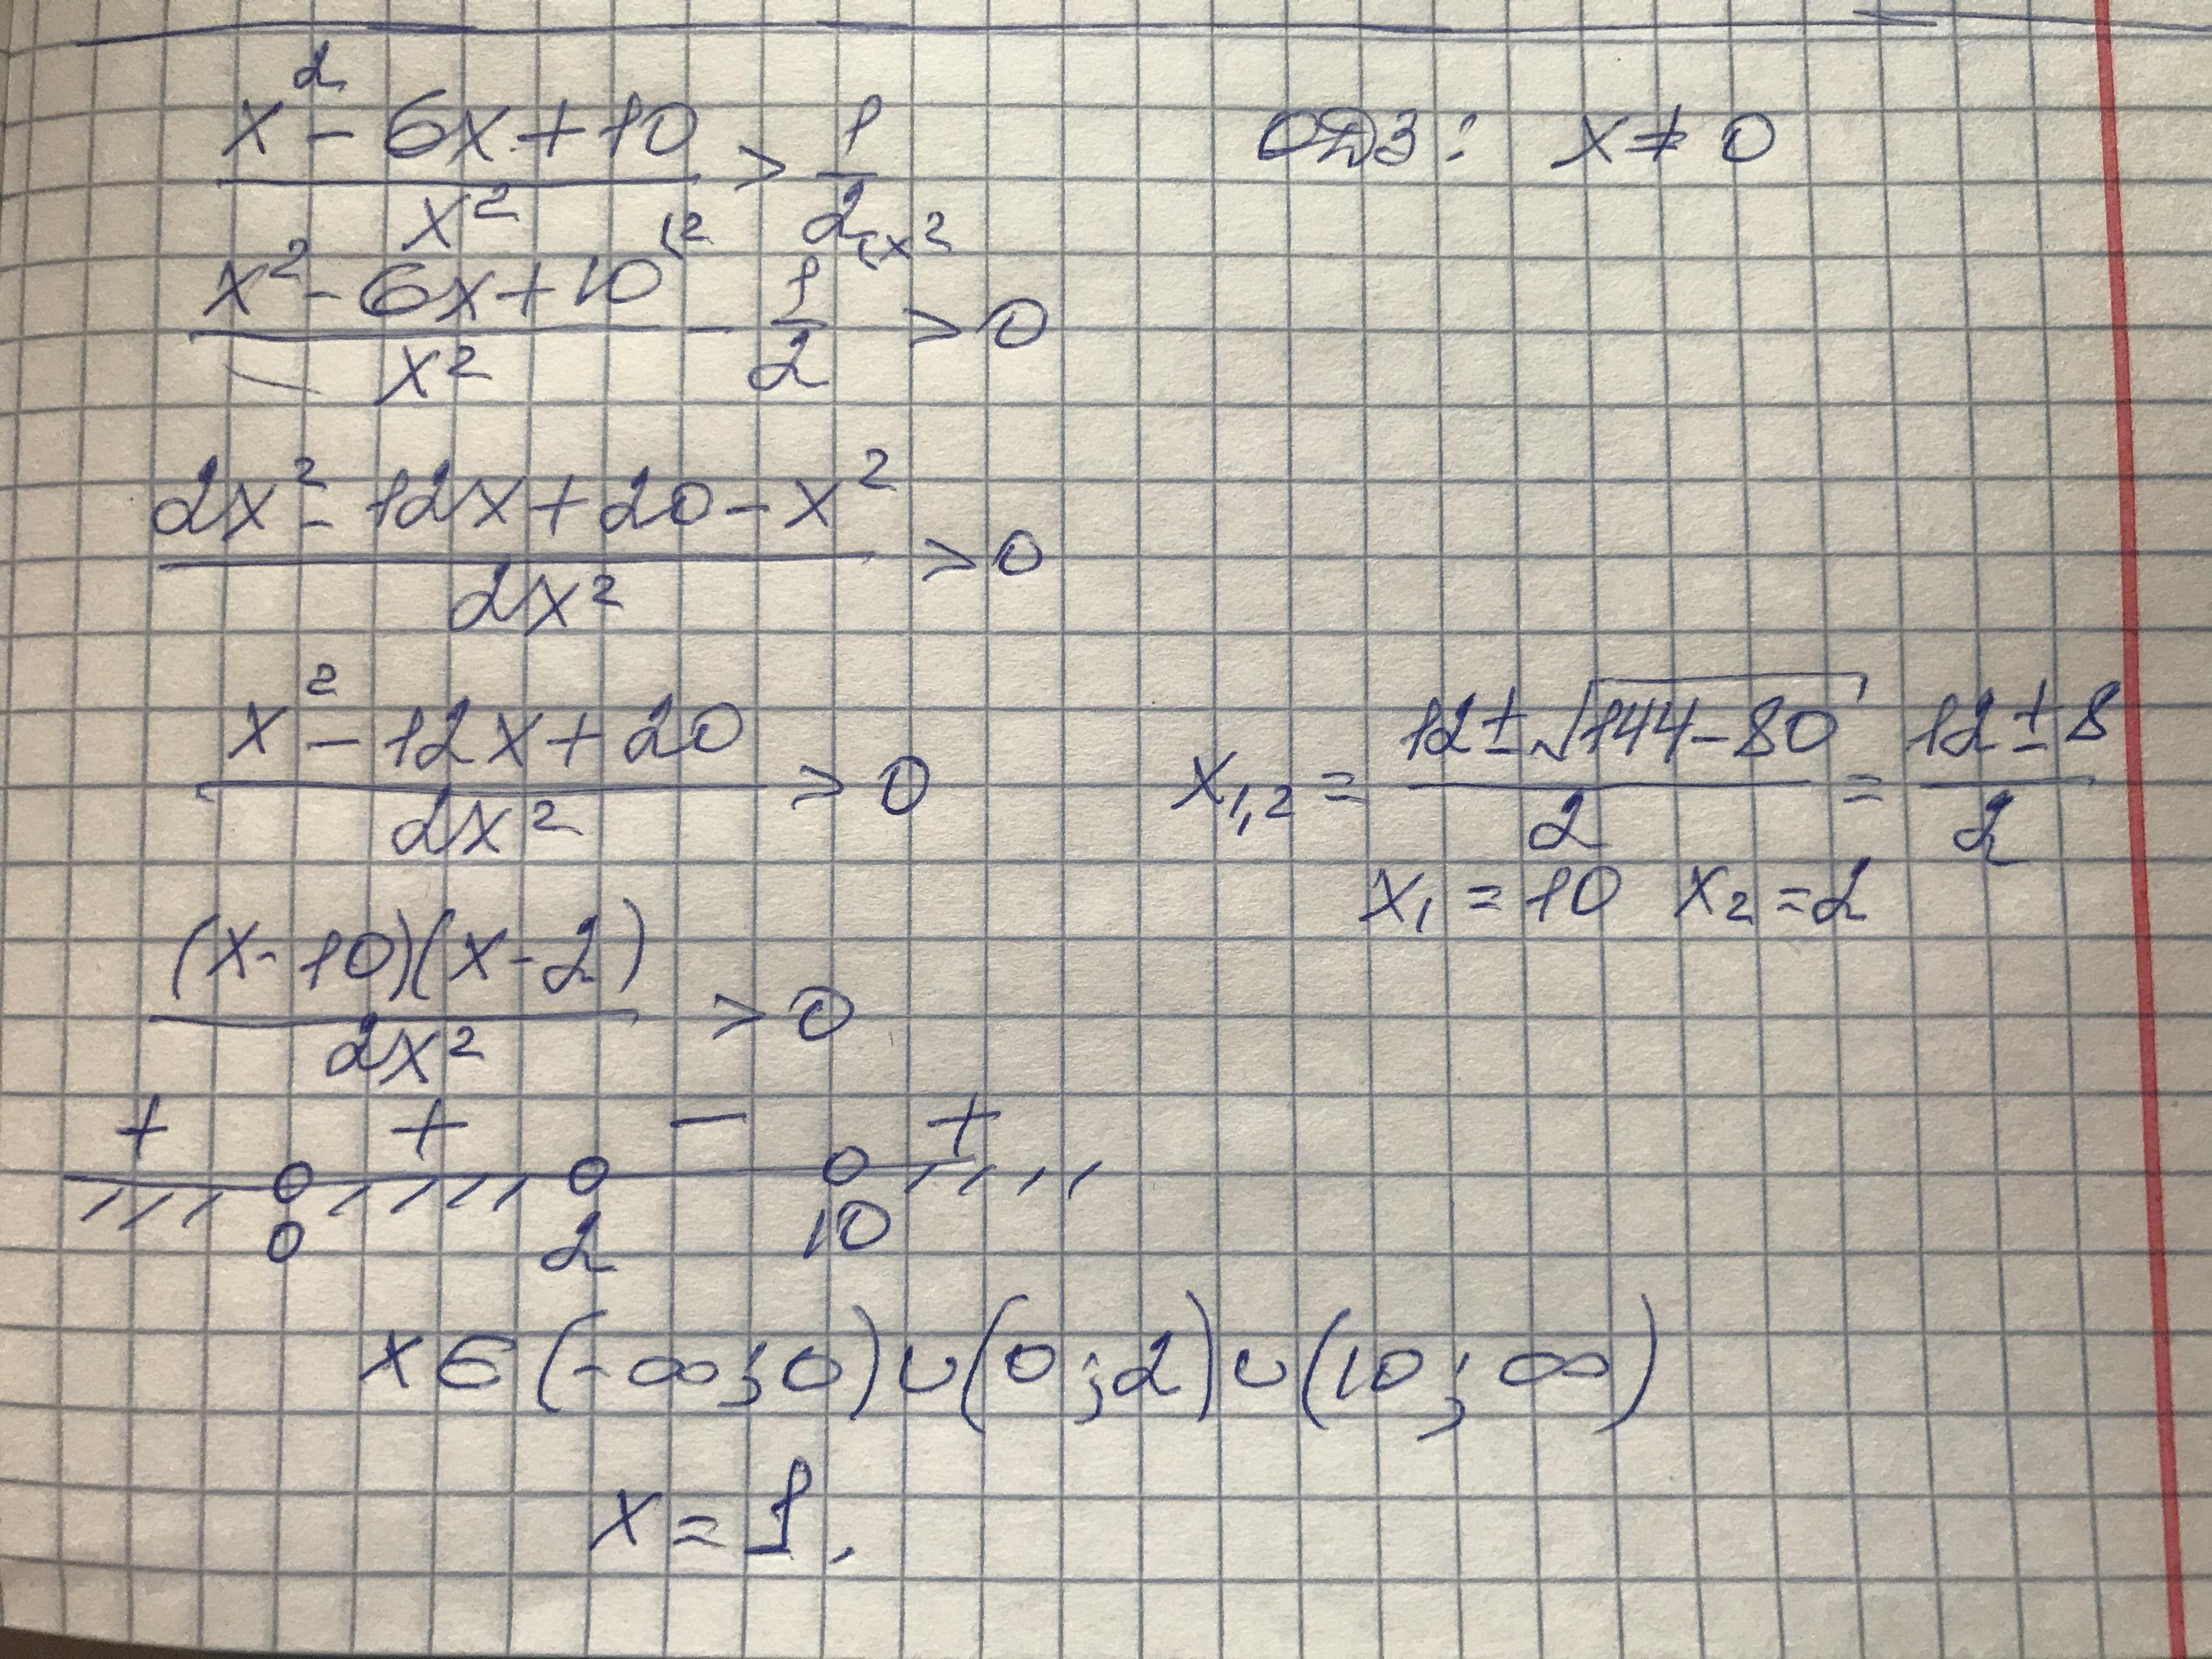 (x² - 6x + 10)/x² > 1/2    ОДЗ: x ≠ 0
(x² - 6x + 10)/x² (2 - 1/2 (x² > 0
(2x² - 12x + 20 - x²)/2x² > 0
(x² - 12x + 20)/2x² > 0    x₁,₂ = (12 ± √(144 - 80))/2 = (12 ± 8)/2
x₁ = 10 x₂ = 2
(x - 10)(x - 2)/2x² > 0
+ + - +
0 2 10
x ∈ (-∞; 0) ∪ (0; 2) ∪ (10; ∞)
x = 1.